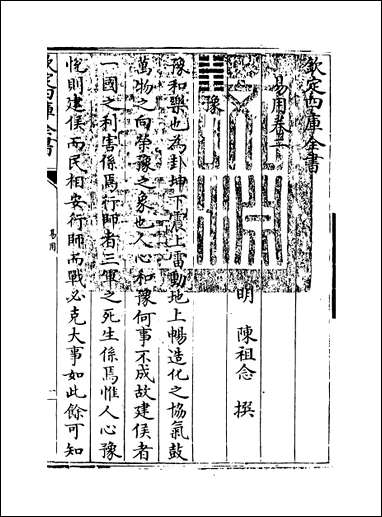 欽定四庫全書
易用卷二
明 陳祖念 撰
豫
豫和樂也為卦坤下震上雷動地上暢造化之協氣鼓
萬物之向榮豫之象也人心和豫何事不成故建侯者
一國之利害係焉行師者三軍之死生係焉惟人心豫
悅則建侯而民相安行師而戰必克大事如此餘可知
欽定四庫全書
易用